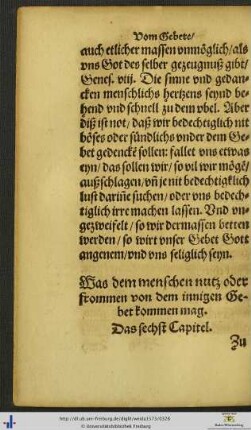 Vom Gebete/
auch etlicher massen vnmöglich/als
vns Got des selber gezeugnuß gibt/
Genes. viij. Die sinne vnd gedan-
cken menschlichs hertzens seynd be-
hend vnd schnell zu dem vbel. Aber
diß ist not/ daß wir bedechtiglich nit
böses oder sündlichs vnder dem Ge-
bet gedencke͂ sollen: fallet vns etwas
eyn/ das sollen wir/ so vil wir möge͂/
außschlagen/ vn͂ je nit bedechtigklich
lust darin͂e suchen/ oder vns bedech-
tiglich irre machen lassen. Vnd vn-
gezweifelt/ so wir dermassen betten
werden/ so wirt vnser Gebet Gott
angenem/ vnd vns seliglich seyn.
Was dem menschen nutz oder
frommen von dem innigen Ge-
bet kommen mag.
Das sechst Capitel.
Zu
© Universitätsbibliothek Freiburg